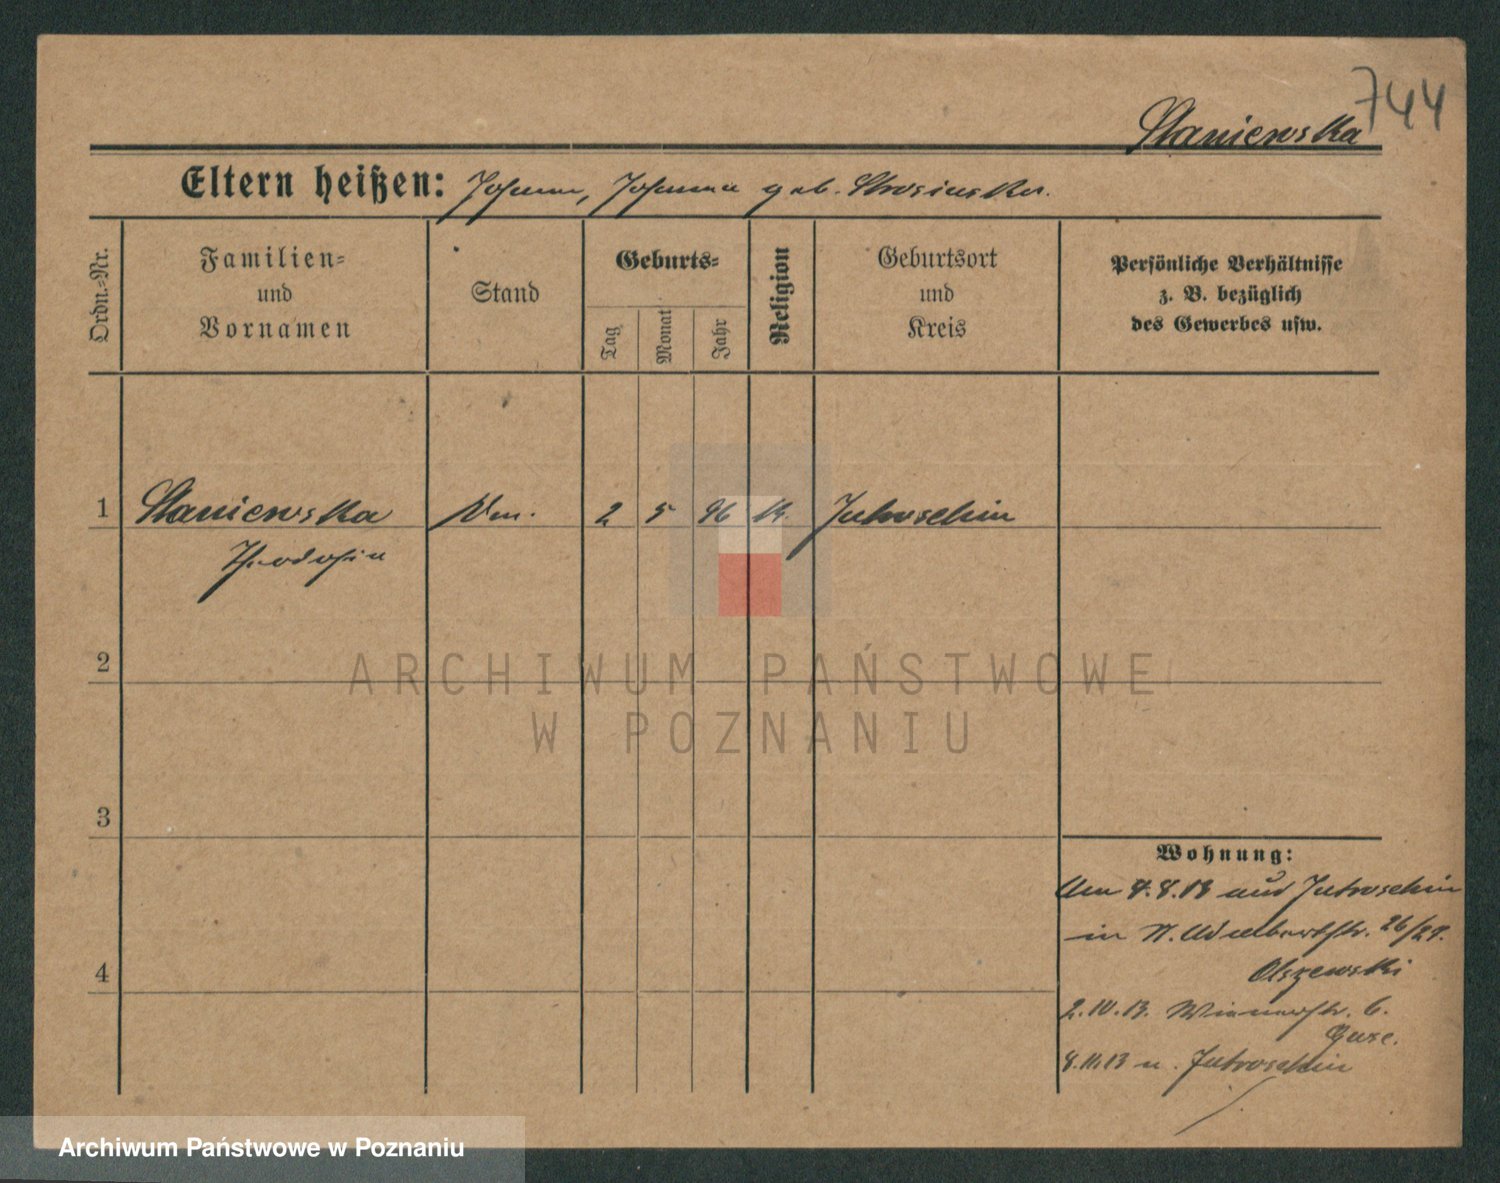 744
Staniewska
Eltern heißen: Johann, Johanna geb. Strosinska.
Ordn.=Nr.
Familien=
und
Vornamen
Stand
Geburts=
Tag
Monat
Jahr
Religion
Geburtsort
und
Kreis
Persönliche Verhältnisse
z. B. bezüglich
des Gewerbes usw.
1 Staniewska 2 5 96 k. Jutroschin
Theodosia
2
3
4
Wohnung:
Am 4.8.13 aus Jutroschin
in St. Adalbertstr. 26/27.
Olszewski
2.10.13. Wienerstr. 6.
8.11.13 n. Jutroschin
ARCHIWUM PAŃSTWOWE
W POZNANIU
Archiwum Państwowe w Poznaniu